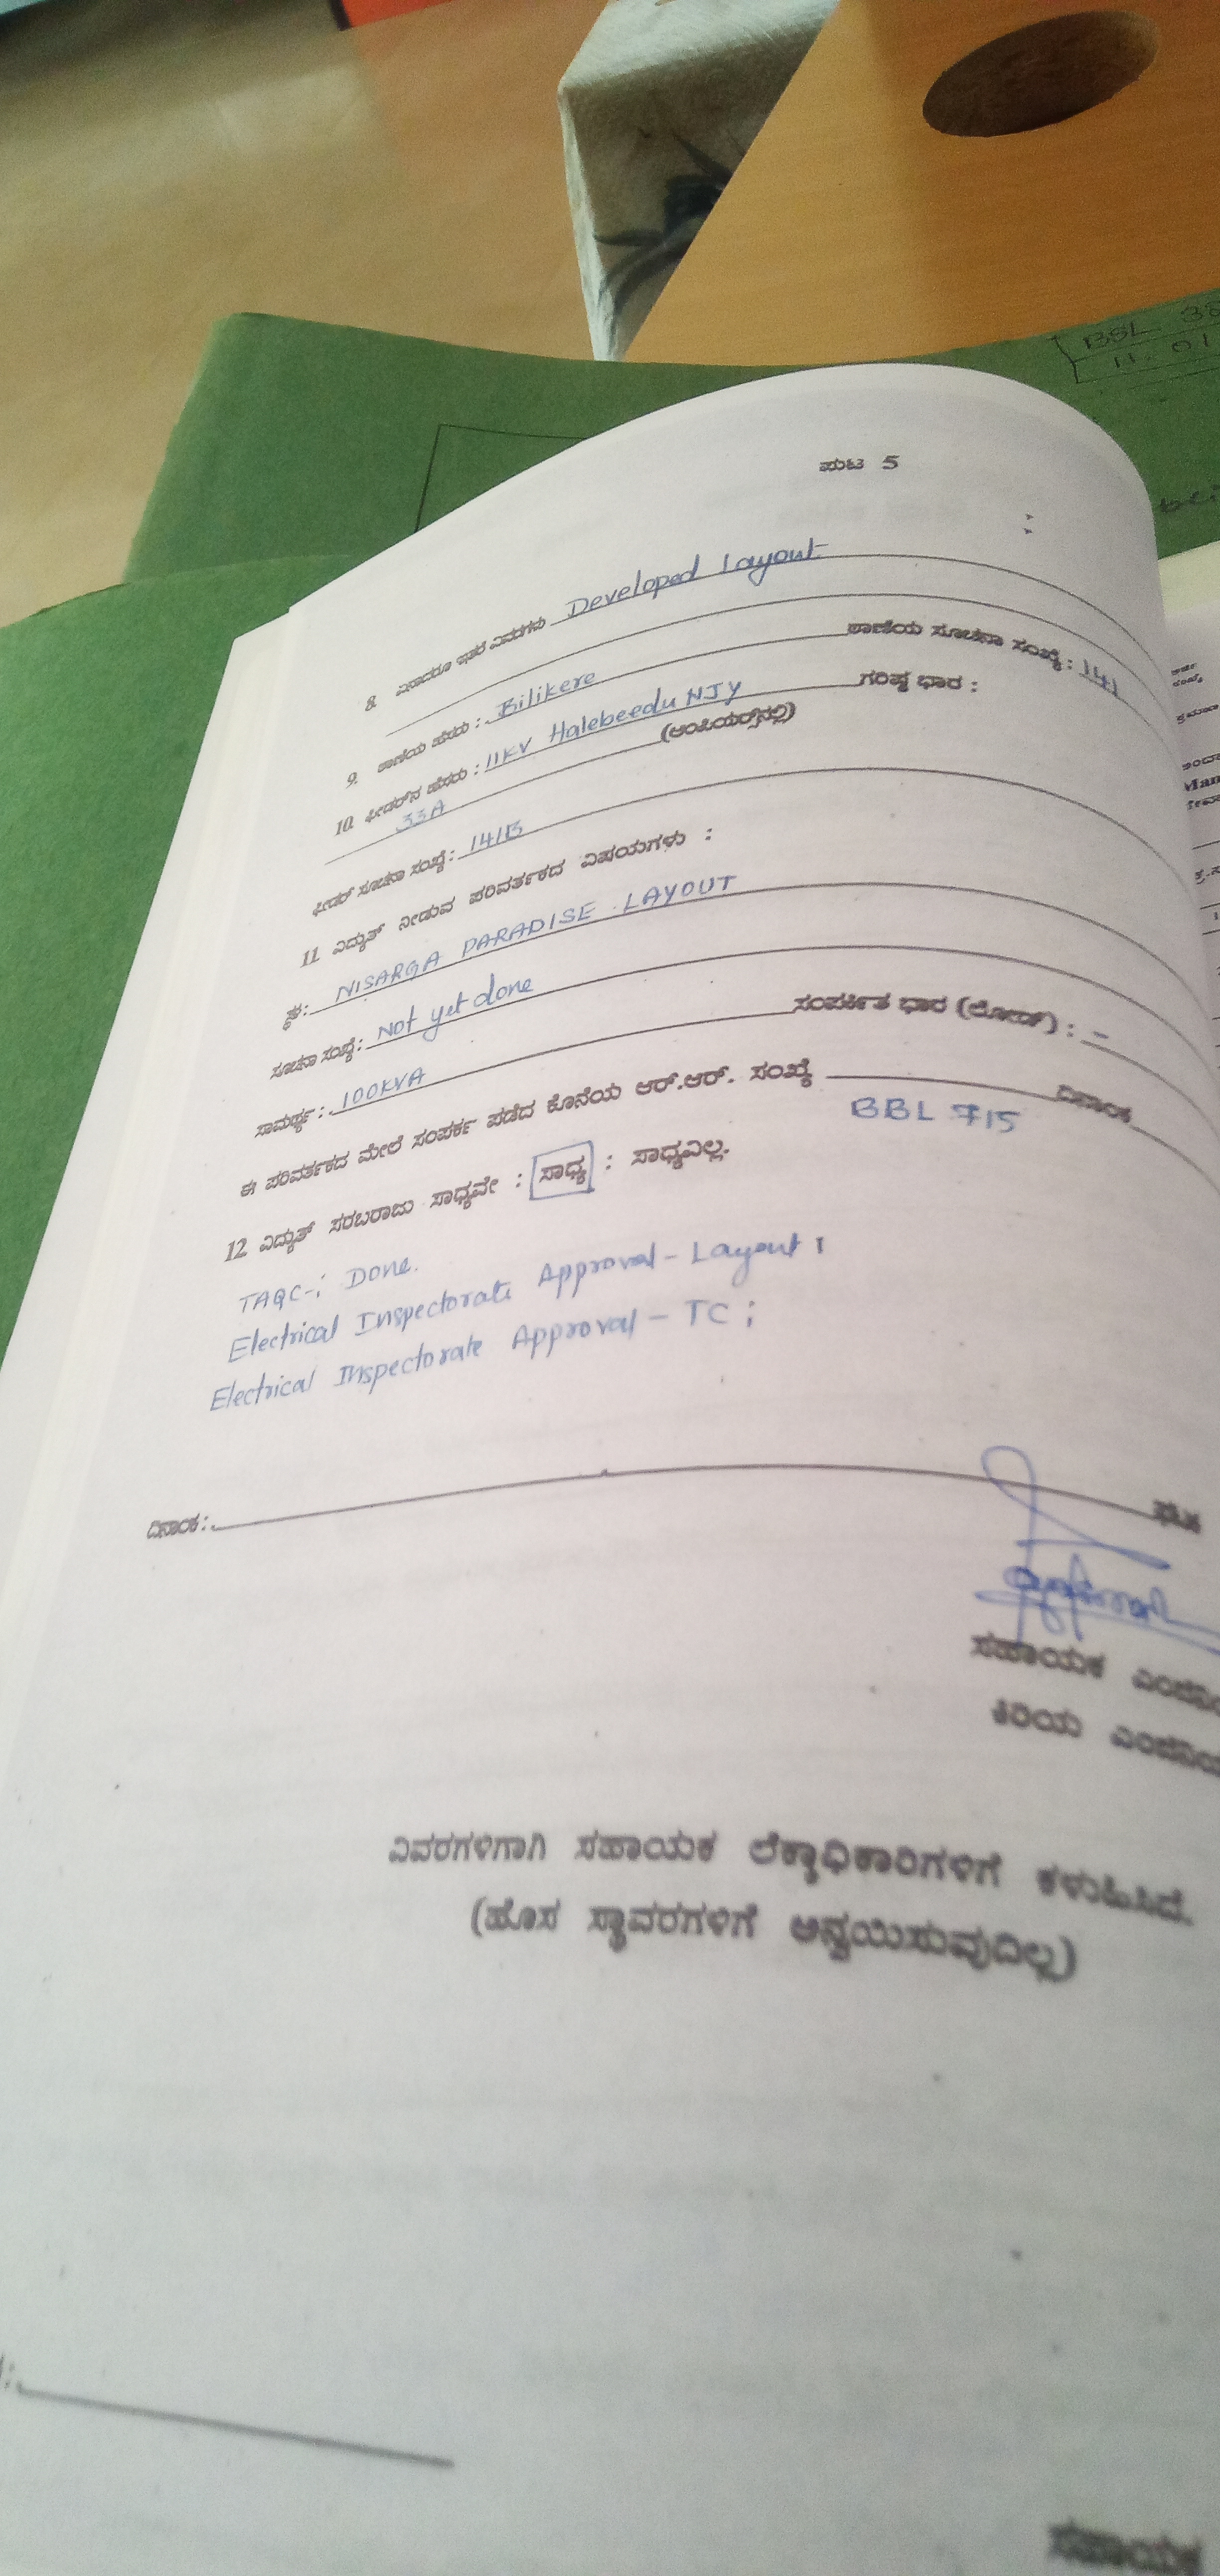 BSL 38
11.01
ಪುಟ 5
8. ವಿವರಗಳು Developed Layout
9. ಠಾಣೆಯ ಹೆಸರು : Bilikere ಠಾಣೆಯ ಸೂಚನಾ ಸಂಖ್ಯೆ : 141
10. ಫೀಡರ್‌ನ ಹೆಸರು : 11KV Halebeedu NJY ಗರಿಷ್ಠ ಭಾರ :
33A (ಅಂಪಿಯರ್ಸ್‌ನಲ್ಲಿ)
ಫೀಡರ್ ಸೂಚನಾ ಸಂಖ್ಯೆ : 141B
11. ವಿದ್ಯುತ್ ನೀಡುವ ಪರಿವರ್ತಕದ ವಿಷಯಗಳು :
ಸ್ಥಳ : NISARGA PARADISE LAYOUT
ಸೂಚನಾ ಸಂಖ್ಯೆ : Not yet done
ಸಾಮರ್ಥ್ಯ : 100KVA ಸಂಪರ್ಕಿತ ಭಾರ (ಲೋಡ್) : -
ಈ ಪರಿವರ್ತಕದ ಮೇಲೆ ಸಂಪರ್ಕ ಪಡೆದ ಕೊನೆಯ ಆರ್.ಆರ್. ಸಂಖ್ಯೆ ದಿನಾಂಕ
BBL 715
12. ವಿದ್ಯುತ್ ಸರಬರಾಜು ಸಾಧ್ಯವೇ : ಸಾಧ್ಯ : ಸಾಧ್ಯವಿಲ್ಲ.
TAQC-; Done.
Electrical Inspectorate Approval - Layout ;
Electrical Inspectorate Approval - TC ;
ದಿನಾಂಕ :
ಸಹಾಯಕ ಎಂಜಿನಿಯ
ಕಿರಿಯ ಎಂಜಿನಿಯ
ವಿವರಗಳಿಗಾಗಿ ಸಹಾಯಕ ಲೆಕ್ಕಾಧಿಕಾರಿಗಳಿಗೆ ಕಳುಹಿಸಿದೆ.
(ಹೊಸ ಸ್ಥಾವರಗಳಿಗೆ ಅನ್ವಯಿಸುವುದಿಲ್ಲ)
ಸಹಾಯಕ